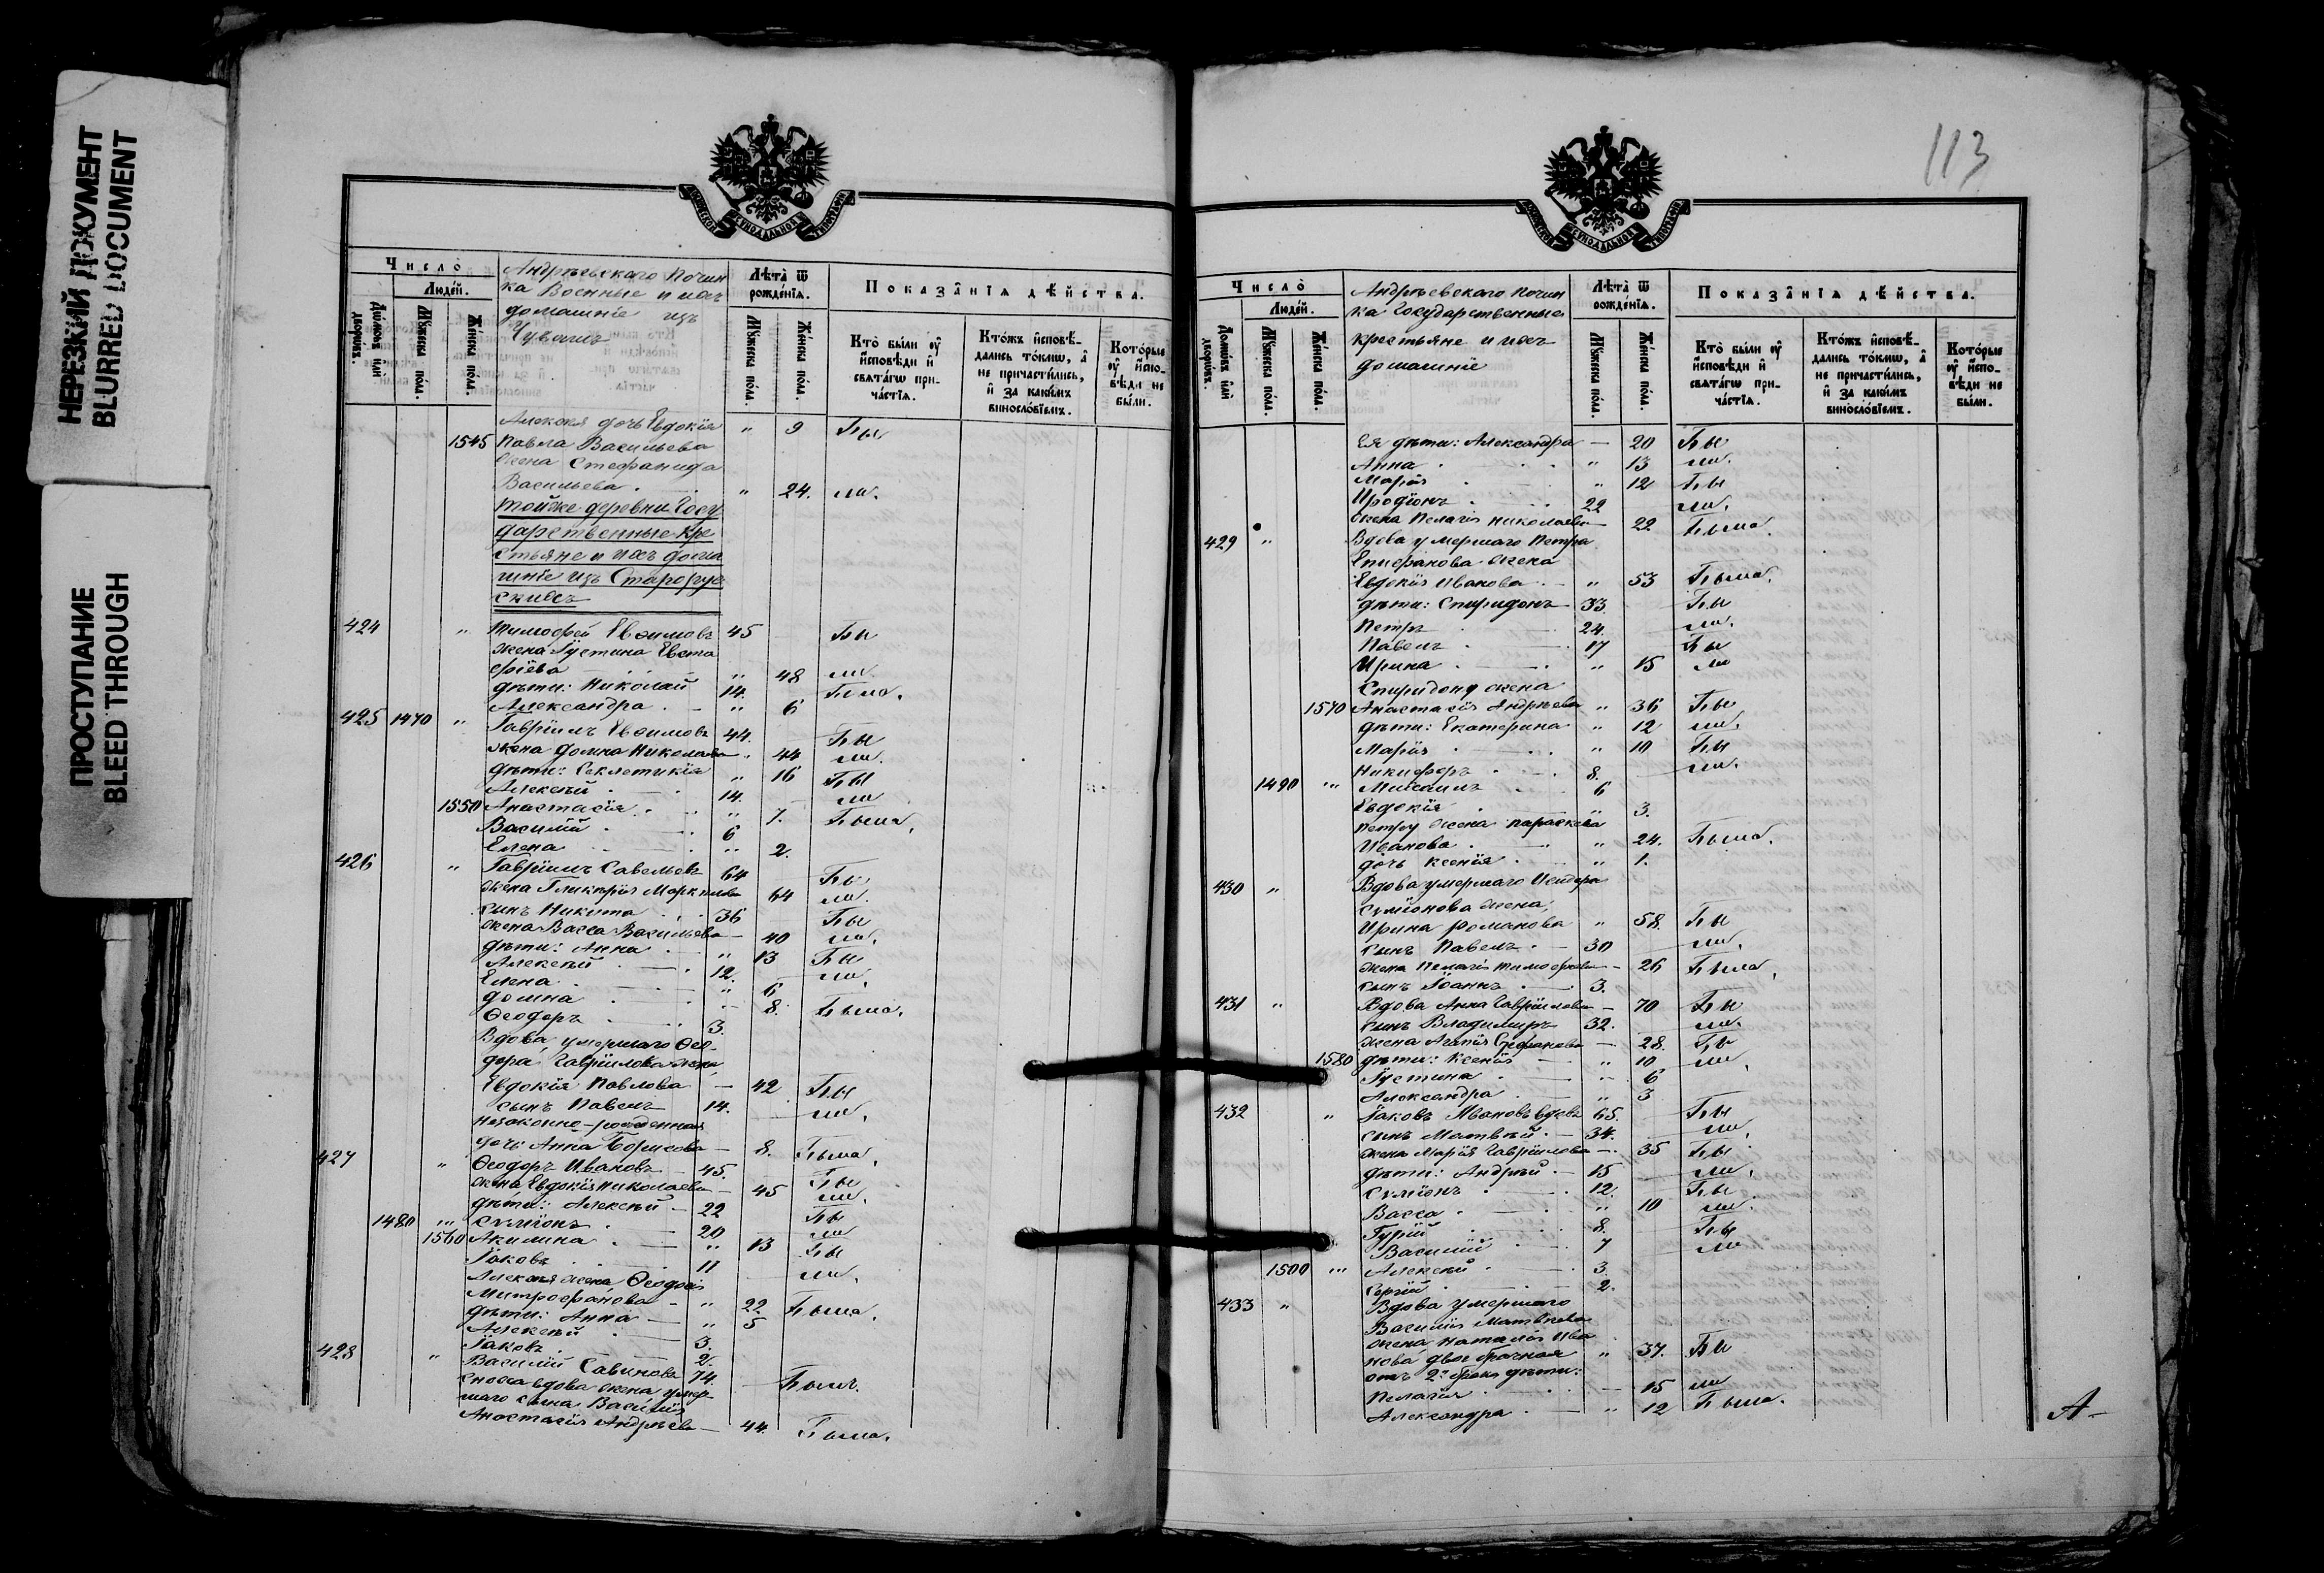 НЕРЕЗКИЙ ДОКУМЕНТ
BLURRED DOCUMENT
ПРОСТУПАНИЕ
BLEED THROUGH
Число
Людей.
Домовъ или дворовъ.
Мужеска пола.
Женска пола.
Андреевскаго Почин
ка Военные и ихъ
домашніе изъ
Чувашъ
Лѣта ѿ рожденія.
Мужеска пола.
Женска пола.
Показанія дѣйства.
Кто были у исповѣди и святагѡ причастія.
Ктожъ исповѣдались токмѡ, а не причастились, и за какимъ винословіемъ.
Которые у исповѣди не были.
Алексѣя дочь Евдокія " 9 Бы
1545 Павла Васильева
жена Стефанида
Васильева " 24. ли.
Тойже деревни Госу
дарственные кре
стьяне и ихъ дома
шніе изъ Старорус
скихъ
424 " Тимофей Евѳимовъ 45 Бы
жена Іустина Евста
фіева " 48 ли.
дѣти: Николай 14. Была.
Александра " 6
425 1470 " Гавріилъ Евѳимовъ 44. Бы
жена Домна Николаева 44 ли.
дѣти: Секлетикія " 16 Бы
Алексѣй 14. ли
1550 Анастасія " 7. Была.
Василій 6
Елена " 2.
426 " Гавріилъ Савельевъ 64 Бы
жена Гликерія Маркелова 64 ли.
сынъ Никита 36 Бы
жена Васса Васильева 40 ли.
дѣти: Анна " 13 Бы
Алексѣй 12. ли.
Елена " 6
Домна 8. Была.
Ѳеодоръ 3.
Вдова умершаго Ѳео-
дора Гавріилова жена
Евдокія Павлова 42 Бы
сынъ Павелъ 14. ли.
Незаконно-рожденная
дочь Анна Борисова 8. Была.
427 " Ѳеодоръ Ивановъ 45. Бы
жена Евдокія Николаева 45 ли.
дѣти: Алексѣй 22 Бы
1480 " Сѵмеонъ 20 ли
1560 Акилина " 13 Бы
Іаковъ 11 ли.
Алексѣя жена Ѳеодосія
Митрофанова " 22 Была.
дѣти: Анна " 5
Алексѣй 3.
Іаковъ 2.
428 " Василій Савиновъ 74. Былъ.
сноха вдова жена умер-
шаго сына Василія
Анастасія Андреева 44. Была.
113
Число
Людей.
Домовъ или дворовъ.
Мужеска пола.
Женска пола.
Андреевскаго Почин
ка Государственные
крестьяне и ихъ
домашніе
Лѣта ѿ рожденія.
Мужеска пола.
Женска пола.
Показанія дѣйства.
Кто были у исповѣди и святагѡ причастія.
Ктожъ исповѣдались токмѡ, а не причастились, и за какимъ винословіемъ.
Которые у исповѣди не были.
Ея дѣти: Александра 20 Бы
Анна " 13 ли.
Марія " 12 Бы
Иродіонъ 22 ли.
жена Пелагія Николаева 22 Была.
429 " Вдова умершаго Петра
Епифанова жена
Евдокія Иванова " 53 Была.
дѣти: Спиридонъ 33. Бы
Петръ 24. ли.
Павелъ 17 Бы
Ирина " 15 ли
Спиридона жена
1570 Анастасія Андреева " 36 Бы
дѣти: Екатерина " 12 ли.
Марія " 10 Бы
Никифоръ 8. ли.
1490 " Михаилъ 6
Евдокія " 3.
Петра жена Параскева
Иванова " 24. Была.
дочь Ксенія " 1.
430 " Вдова умершаго Исидора
Сѵмеонова жена
Ирина Романова " 58. Бы
сынъ Павелъ 30 ли.
жена Пелагія Тимофеева 26 Была.
сынъ Іоаннъ 3.
431 " Вдова Анна Гавріилова 70 Бы
сынъ Владимиръ 32. ли.
жена Агапія Стефанова 28. Бы
1580 дѣти: Ксенія " 10 ли.
Іустина 6
Александра " 3
432 " Іаковъ Ивановъ вдовъ 65. Бы
сынъ Матвѣй 34. ли.
жена Марія Гавріилова 35 Бы
дѣти: Андрей 15 ли.
Сѵмеонъ 12. Бы
Васса " 10 ли.
Гурій 8. Бы
Василій 7 ли
1500 " Алексѣй 3.
Сергій 2.
433 " Вдова умершаго
Василія Матвѣева
жена Наталія Ива
нова двоебрачная " 37. Бы
отъ 2го брака дѣти:
Пелагія 15 ли
Александра " 12 Была.
А-